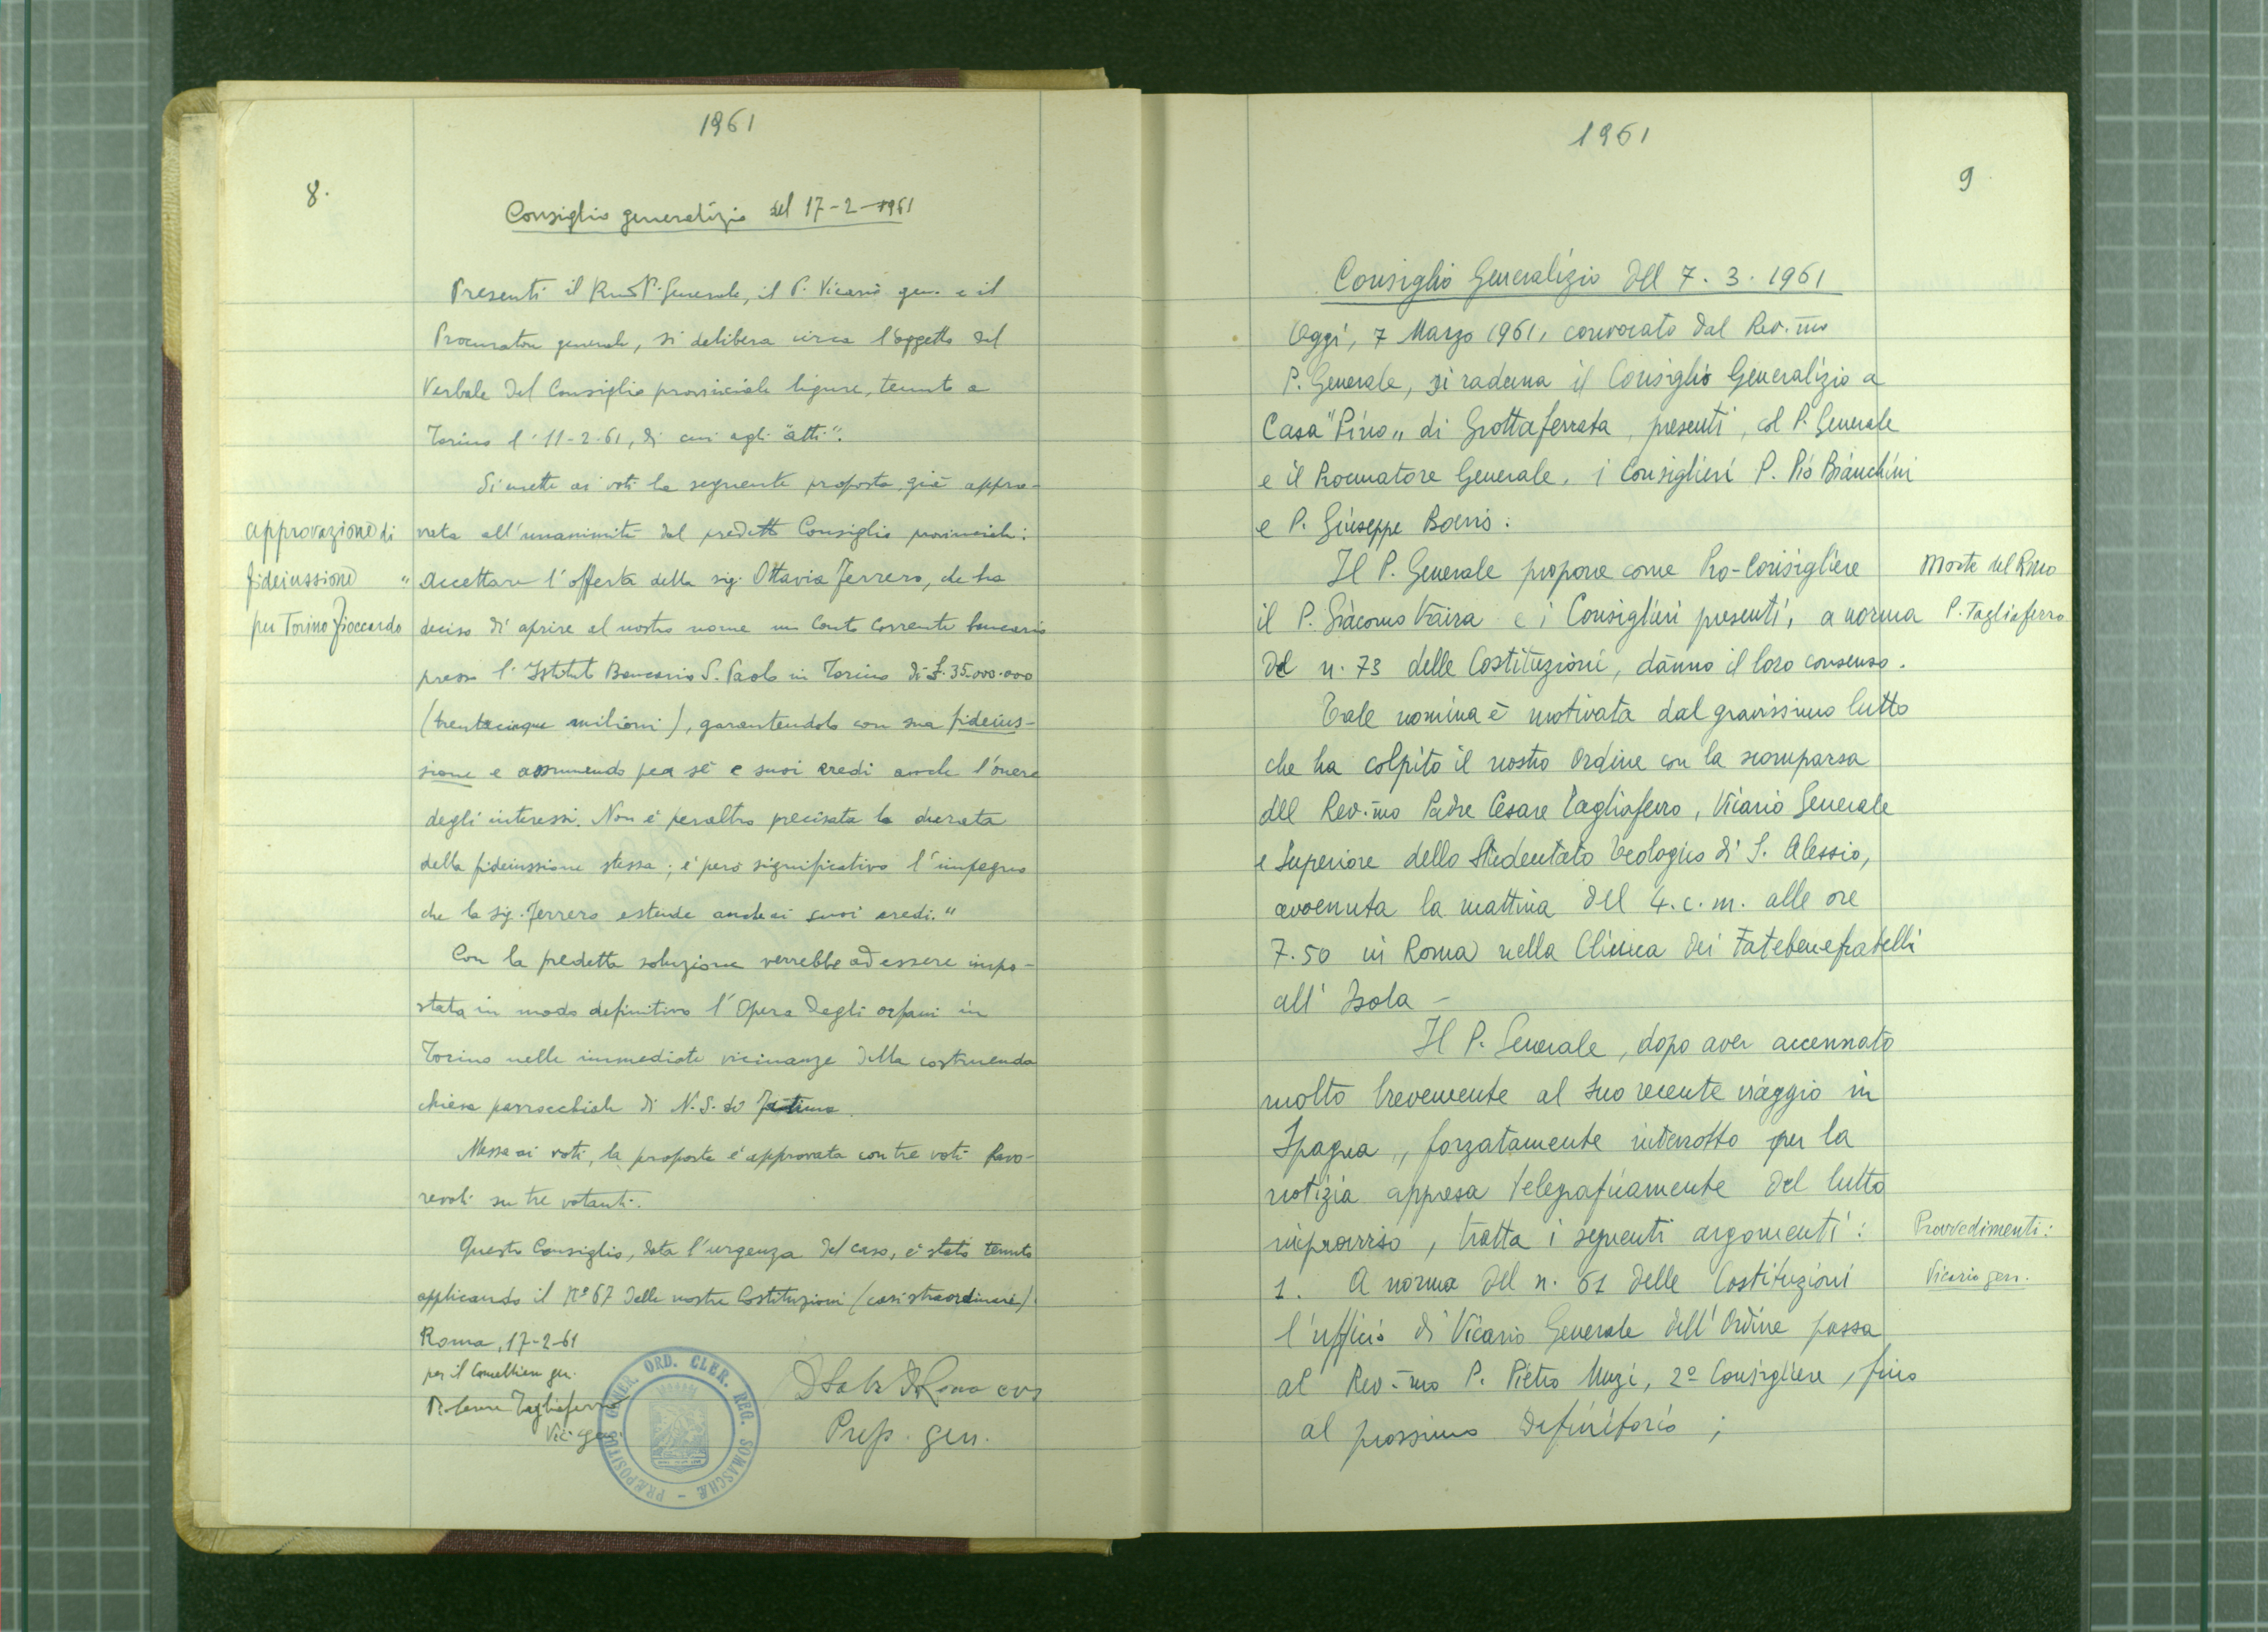 1961
8.
Consiglio generalizio del 17-2-1961
Presenti il Rmo P. Generale, il P. Vicario gen. e il
Procuratore generale, si delibera circa l'oggetto del
Verbale del Consiglio provinciale ligure, tenuto a
Torino l'11-2-61, di cui agli "atti".
Si mette ai voti la seguente proposta già appro-
approvazione di
fideiussione
per Torino Fioccardo
vata all'unanimità dal predetto Consiglio provinciale:
"Accettare l'offerta della sig. Ottavia Ferrero, che ha
deciso di aprire al nostro nome un Conto Corrente bancario
presso l'Istituto Bancario S. Paolo in Torino di £. 35.000.000
(trentacinque milioni), garantendolo con sua fideius-
sione e assumendo per sé e suoi eredi anche l'onere
degli interessi. Non è peraltro precisata la durata
della fideiussione stessa; è però significativo l'impegno
che la sig. Ferrero estende anche ai suoi eredi."
Con la predetta soluzione verrebbe ad essere impo-
stata in modo definitivo l'Opera degli orfani in
Torino nelle immediate vicinanze della costruenda
chiesa parrocchiale di N.S. di Fatima.
Messa ai voti, la proposta è approvata con tre voti favo-
revoli su tre votanti.
Questo Consiglio, data l'urgenza del caso, è stato tenuto
applicando il Nº 67 delle nostre Costituzioni (casi straordinari).
Roma, 17-2-61
per il Cancelliere gen.
P. Cesare Tagliaferro
Vic. gen.
PRÆPOSITUS GENER. ORD. CLER. REG. SOMASCHÆ
Prep. gen.
1961
9
Consiglio Generalizio del 7. 3. 1961
Oggi, 7 Marzo 1961, convocato dal Rev.mo
P. Generale, si raduna il Consiglio Generalizio a
Casa "Pino" di Grottaferrata, presenti, col P. Generale
e il Procuratore Generale, i Consiglieri P. Pio Bianchini
e P. Giuseppe Boeris.
Il P. Generale propone come Pro-Consigliere
Morte del Rmo
P. Tagliaferro
il P. Giacomo Vaira e i Consiglieri presenti, a norma
del n. 73 delle Costituzioni, danno il loro consenso.
Tale nomina è motivata dal gravissimo lutto
che ha colpito il nostro Ordine con la scomparsa
del Rev.mo Padre Cesare Tagliaferro, Vicario Generale
e Superiore dello Studentato Teologico di S. Alessio,
avvenuta la mattina del 4. c. m. alle ore
7.50 in Roma nella Clinica dei Fatebenefratelli
all'Isola -
Il P. Generale, dopo aver accennato
molto brevemente al suo recente viaggio in
Spagna, forzatamente interrotto per la
notizia appresa telegraficamente del lutto
improvviso, tratta i seguenti argomenti:
Provvedimenti:
Vicario gen.
1. A norma del n. 61 delle Costituzioni
l'ufficio di Vicario Generale dell'Ordine passa
al Rev.mo P. Pietro Muzi, 2º Consigliere, fino
al prossimo Definitorio;